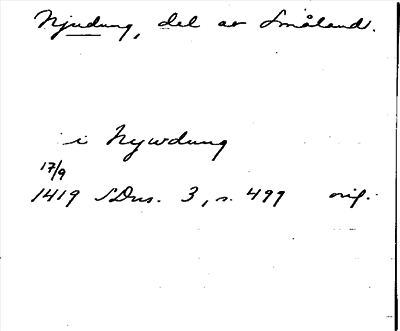 Njudung, del av Småland.
i Nywdung
17/9
1419 SDns. 3, s. 499 orig.